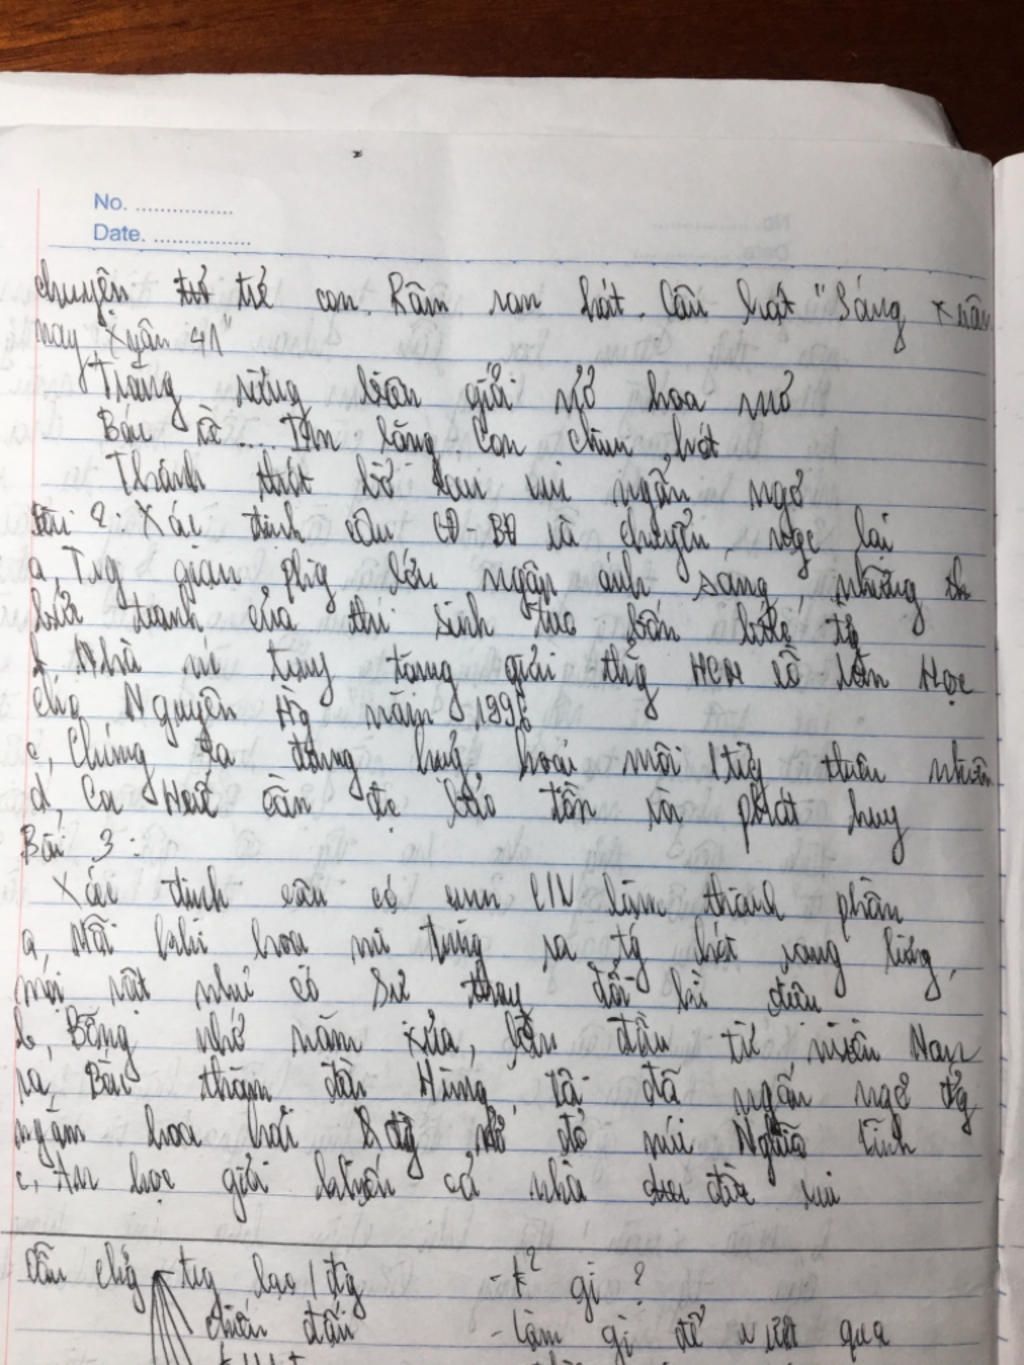 No. ................
Date. ................
chuyện trẻ con. Râm ran hát. Câu hát "Sáng xuân
nay Xuân 41"
Trắng rừng biên giới nở hoa mơ
Bác về... Im lặng. Con chim hót
Thánh thót bờ lau vui ngẩn ngơ
Bài 2: Xác định câu CĐ-BĐ và chuyển ngc lại
a, Trg gian phg lớn ngập ánh sáng, những
bức tranh của thí sinh treo kín bốn
b, Nhà vc tặng giải thg HCM về Văn Học
cho Nguyên Hg năm 1996
c, Chúng ta đang huỷ hoại môi trg thiên nhiên
d, Ca Huế cần đc bảo tồn và phát huy
Bài 3:
Xác định câu có cụm C/V làm thành phần
a, Mỗi khi hoạ mi tung ra tg hót vang lừng,
mọi vật như có sự thay đổi kì diệu
b, Bỗng nhớ năm xưa, lần đầu từ miền Nam
ra, Bác thăm đền Hùng, tôi đã ngẩn ngơ đứg
ngắm hoa hải đg nở đỏ núi Nghĩa Lĩnh
c, An học giỏi khiến cả nhà đều vui
Dẫn chg trg lao đg - k² gì?
chiến đấu - làm gì để vượt qua